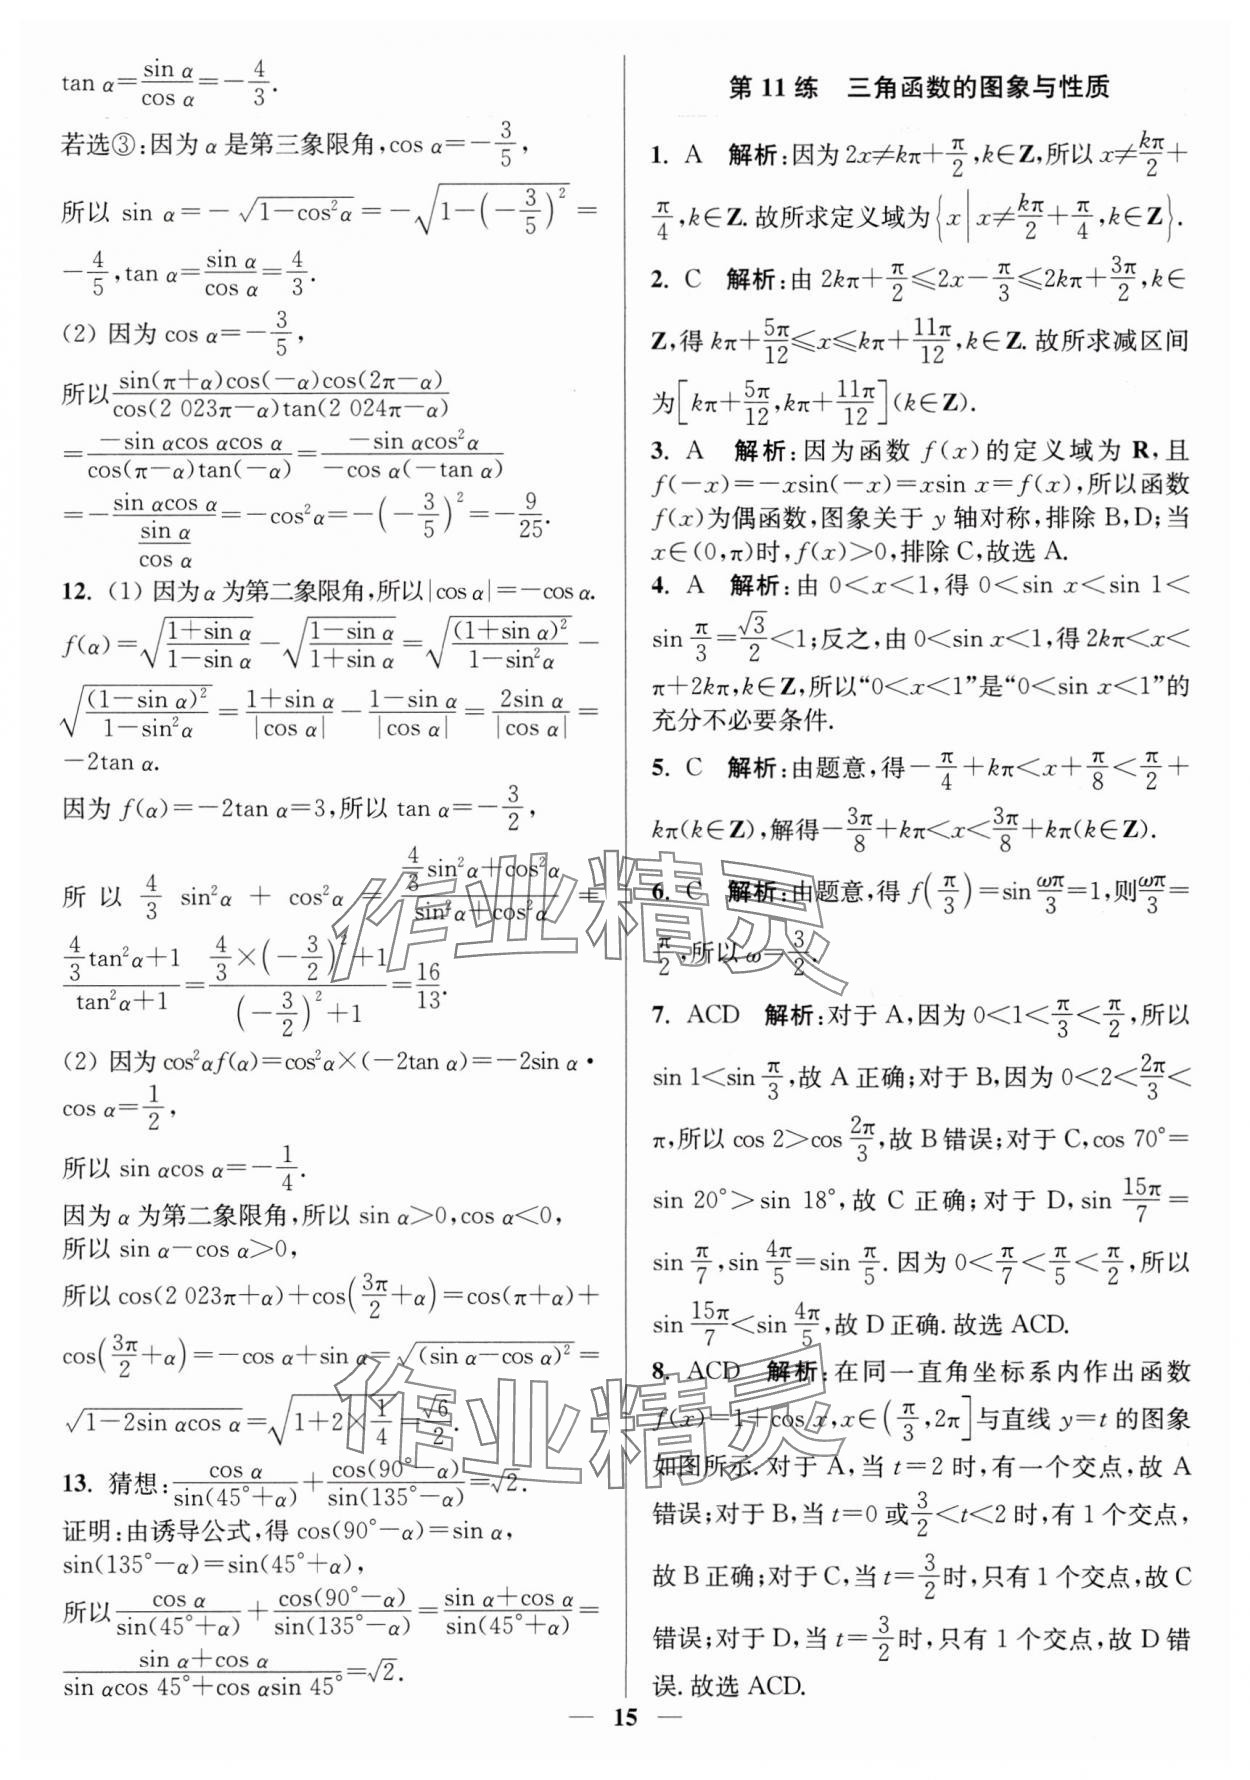 tan α=sin α/cos α=-4/3.
若选③:因为 α 是第三象限角,cos α=-3/5,
所以 sin α=-√(1-cos²α)=-√(1-(-3/5)²)=
-4/5,tan α=sin α/cos α=4/3.
(2) 因为 cos α=-3/5,
所以 sin(π+α)cos(-α)cos(2π-α)/cos(2 023π-α)tan(2 024π-α)
=-sin αcos αcos α/cos(π-α)tan(-α)=-sin αcos²α/-cos α(-tan α)
=-sin αcos α/(sin α/cos α)=-cos²α=-(-3/5)²=-9/25.
12. (1) 因为 α 为第二象限角,所以|cos α|=-cos α.
f(α)=√((1+sin α)/(1-sin α))-√((1-sin α)/(1+sin α))=√((1+sin α)²/(1-sin²α))-
√((1-sin α)²/(1-sin²α))=(1+sin α)/|cos α|-(1-sin α)/|cos α|=2sin α/|cos α|=
-2tan α.
因为 f(α)=-2tan α=3,所以 tan α=-3/2,
所以 4/3 sin²α+cos²α=(4/3 sin²α+cos²α)/(sin²α+cos²α)=
(4/3 tan²α+1)/(tan²α+1)=(4/3×(-3/2)²+1)/((-3/2)²+1)=16/13.
(2) 因为 cos²αf(α)=cos²α×(-2tan α)=-2sin α·
cos α=1/2,
所以 sin αcos α=-1/4.
因为 α 为第二象限角,所以 sin α>0,cos α<0,
所以 sin α-cos α>0,
所以 cos(2 023π+α)+cos(3π/2+α)=cos(π+α)+
cos(3π/2+α)=-cos α+sin α=√((sin α-cos α)²)=
√(1-2sin αcos α)=√(1+2×1/4)=√6/2.
13. 猜想:cos α/sin(45°+α)+cos(90°-α)/sin(135°-α)=√2.
证明:由诱导公式,得 cos(90°-α)=sin α,
sin(135°-α)=sin(45°+α),
所以 cos α/sin(45°+α)+cos(90°-α)/sin(135°-α)=(sin α+cos α)/sin(45°+α)=
(sin α+cos α)/(sin αcos 45°+cos αsin 45°)=√2.
第 11 练 三角函数的图象与性质
1. A 解析:因为 2x≠kπ+π/2,k∈Z,所以 x≠kπ/2+
π/4,k∈Z.故所求定义域为{x|x≠kπ/2+π/4,k∈Z}.
2. C 解析:由 2kπ+π/2≤2x-π/3≤2kπ+3π/2,k∈
Z,得 kπ+5π/12≤x≤kπ+11π/12,k∈Z.故所求减区间
为[kπ+5π/12,kπ+11π/12](k∈Z).
3. A 解析:因为函数 f(x)的定义域为 R,且
f(-x)=-xsin(-x)=xsin x=f(x),所以函数
f(x)为偶函数,图象关于 y 轴对称,排除 B,D;当
x∈(0,π)时,f(x)>0,排除 C,故选 A.
4. A 解析:由 0<x<1,得 0<sin x<sin 1<
sin π/3=√3/2<1;反之,由 0<sin x<1,得 2kπ<x<
π+2kπ,k∈Z,所以“0<x<1”是“0<sin x<1”的
充分不必要条件.
5. C 解析:由题意,得-π/4+kπ<x+π/8<π/2+
kπ(k∈Z),解得-3π/8+kπ<x<3π/8+kπ(k∈Z).
6. C 解析:由题意,得 f(π/3)=sin ωπ/3=1,则ωπ/3=
π/2,所以 ω=3/2.
7. ACD 解析:对于 A,因为 0<1<π/3<π/2,所以
sin 1<sin π/3,故 A 正确;对于 B,因为 0<2<2π/3<
π,所以 cos 2>cos 2π/3,故 B 错误;对于 C,cos 70°=
sin 20°>sin 18°,故 C 正确;对于 D,sin 15π/7=
sin π/7,sin 4π/5=sin π/5.因为 0<π/7<π/5<π/2,所以
sin 15π/7<sin 4π/5,故 D 正确.故选 ACD.
8. ACD 解析:在同一直角坐标系内作出函数
f(x)=1+cos x,x∈(π/3,2π]与直线 y=t 的图象
如图所示.对于 A,当 t=2 时,有一个交点,故 A
错误;对于 B,当 t=0 或3/2<t<2 时,有 1 个交点,
故 B 正确;对于 C,当 t=3/2时,只有 1 个交点,故 C
错误;对于 D,当 t=3/2时,只有 1 个交点,故 D 错
误.故选 ACD.
作业精灵
作业精灵
— 15 —